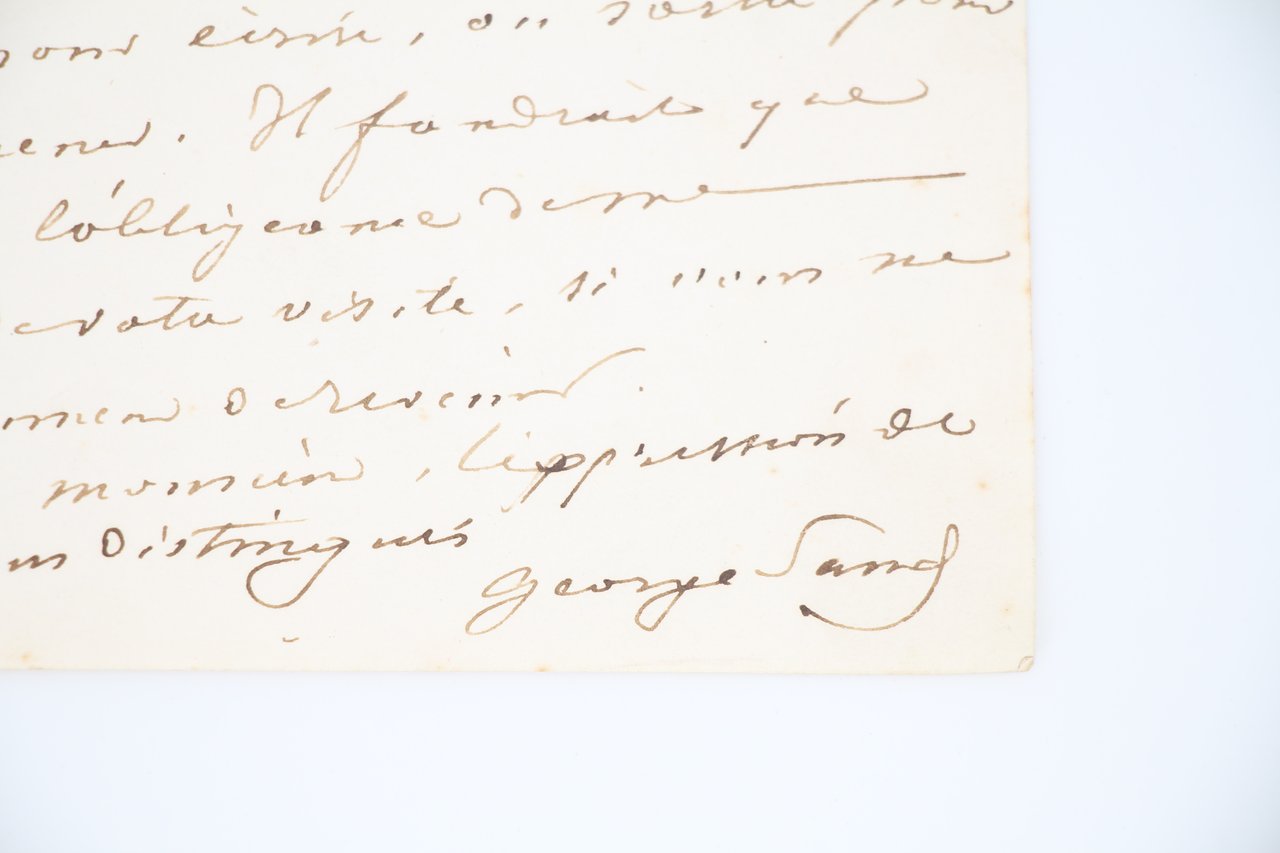 pour écrire, ou sortir pour
Il faudrait que
l'obligeance de me
de votre visite, si vous ne
de revenir.
monsieur, l'expression de
distingués
George Sand